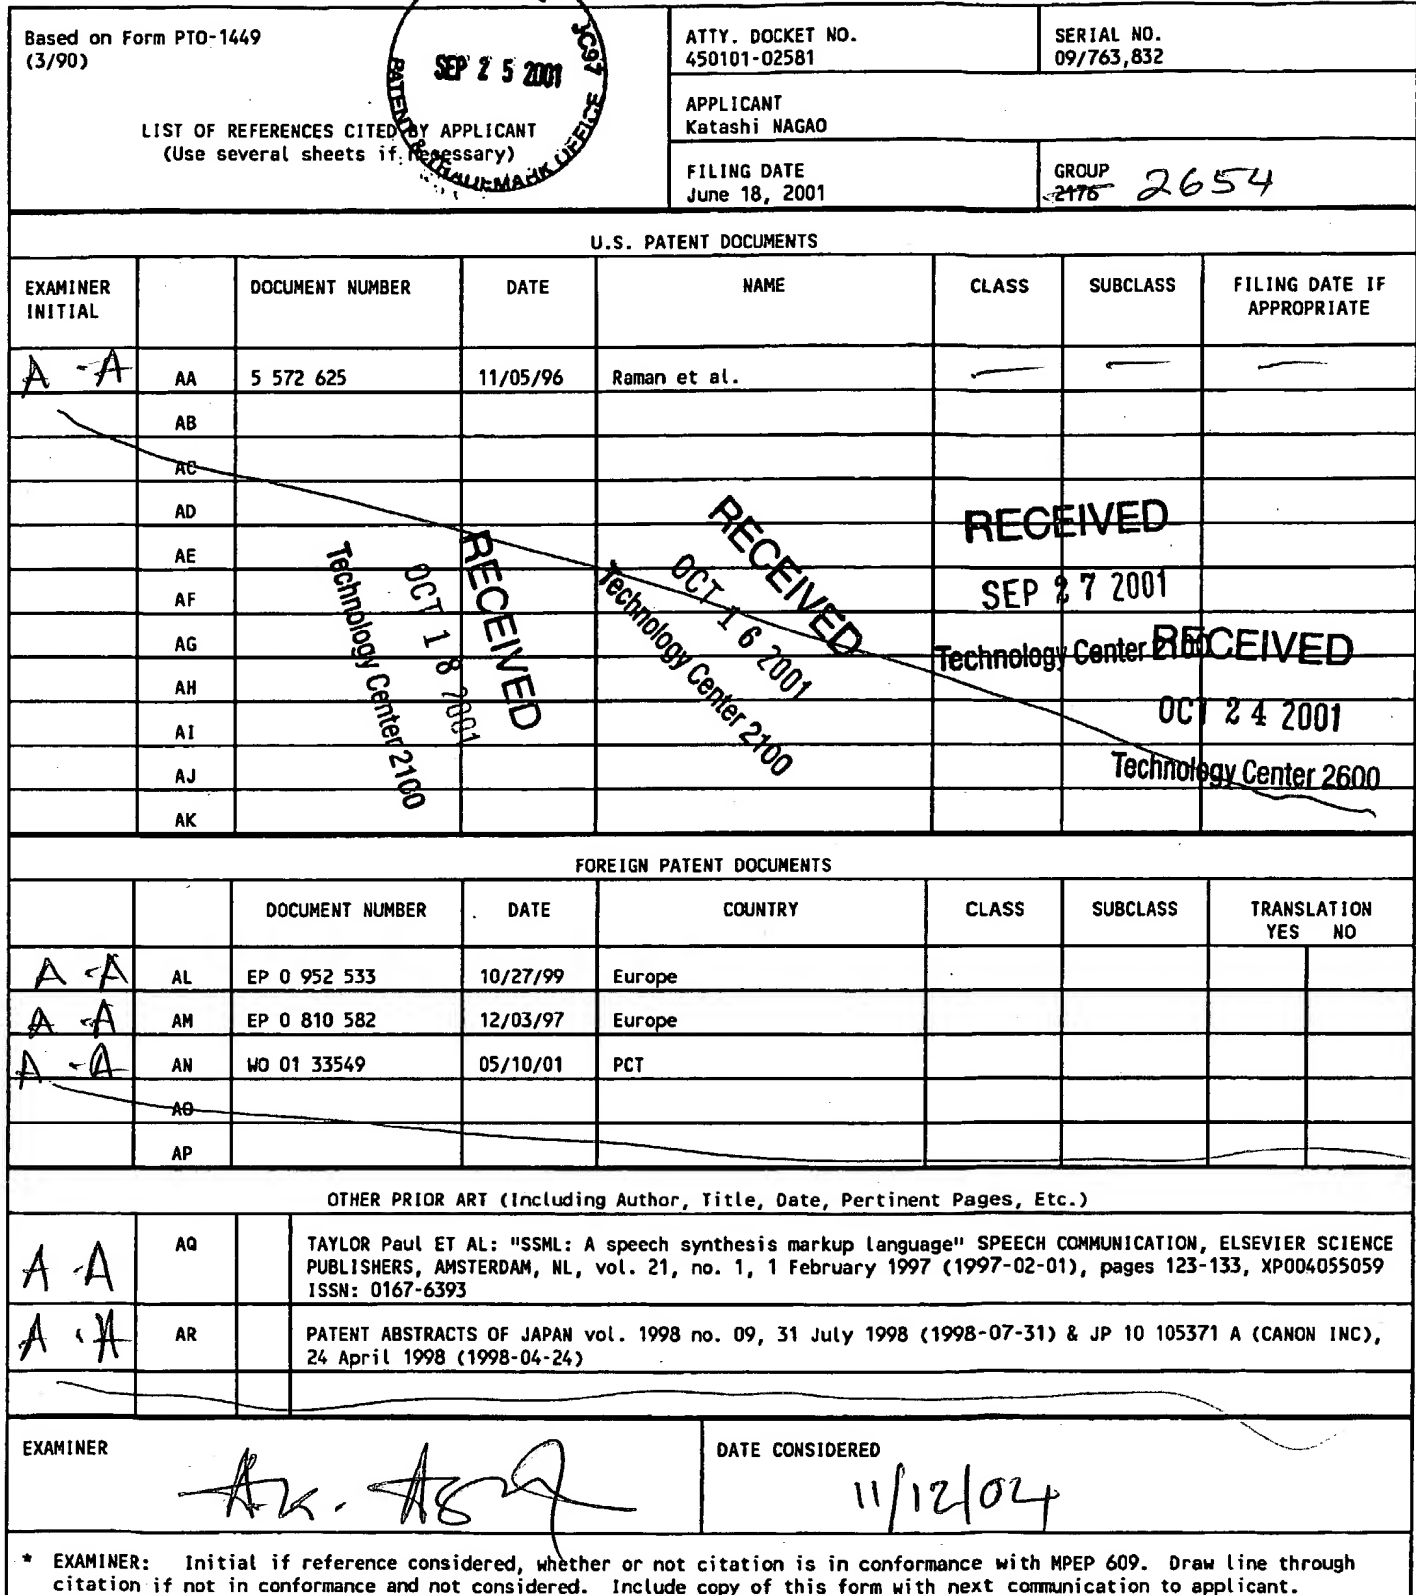 Based on Form PTO-1449
(3/90)
LIST OF REFERENCES CITED BY APPLICANT
(Use several sheets if necessary)
SEP 25 2001
JC97
PATENT & TRADEMARK OFFICE
ATTY. DOCKET NO.
450101-02581
SERIAL NO.
09/763,832
APPLICANT
Katashi NAGAO
FILING DATE
June 18, 2001
GROUP
2176 2654
U.S. PATENT DOCUMENTS
EXAMINER INITIAL DOCUMENT NUMBER DATE NAME CLASS SUBCLASS FILING DATE IF APPROPRIATE
A-A AA 5 572 625 11/05/96 Raman et al. — — —
AB
AC
AD
AE
AF
AG
AH
AI
AJ
AK
RECEIVED
OCT 18 2001
Technology Center 2100
RECEIVED
OCT 16 2001
Technology Center 2100
RECEIVED
SEP 27 2001
Technology Center 2100
RECEIVED
OCT 24 2001
Technology Center 2600
FOREIGN PATENT DOCUMENTS
DOCUMENT NUMBER DATE COUNTRY CLASS SUBCLASS TRANSLATION YES NO
A-A AL EP 0 952 533 10/27/99 Europe
A-A AM EP 0 810 582 12/03/97 Europe
A-A AN WO 01 33549 05/10/01 PCT
AO
AP
OTHER PRIOR ART (Including Author, Title, Date, Pertinent Pages, Etc.)
A-A AQ TAYLOR Paul ET AL: "SSML: A speech synthesis markup language" SPEECH COMMUNICATION, ELSEVIER SCIENCE
PUBLISHERS, AMSTERDAM, NL, vol. 21, no. 1, 1 February 1997 (1997-02-01), pages 123-133, XP004055059
ISSN: 0167-6393
A-A AR PATENT ABSTRACTS OF JAPAN vol. 1998 no. 09, 31 July 1998 (1998-07-31) & JP 10 105371 A (CANON INC),
24 April 1998 (1998-04-24)
EXAMINER
DATE CONSIDERED
11/12/04
* EXAMINER: Initial if reference considered, whether or not citation is in conformance with MPEP 609. Draw line through
citation if not in conformance and not considered. Include copy of this form with next communication to applicant.